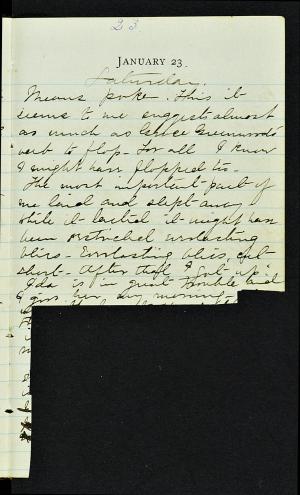 23
JANUARY 23
Saturday.
Means poke. This it
seems to me suggests almost
as much as Grace Greenwood's
verb to flop. For all I know
I might have flopped to.
The most important part of
me laid and slept away
while it lasted it might have
been ostrichal everlasting
bliss - Everlasting bliss, cut
short. After that I got up.
Ida is in great trouble and
I give her my morning